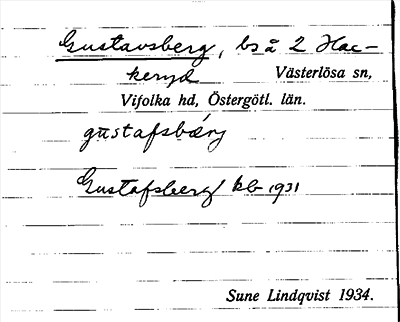 Gustavsberg, bs å 2 Hac-
keryd Västerlösa sn,
Vifolka hd, Östergötl. län.
gustafsbærj
Gustafsberg kb 1931
Sune Lindqvist 1934.